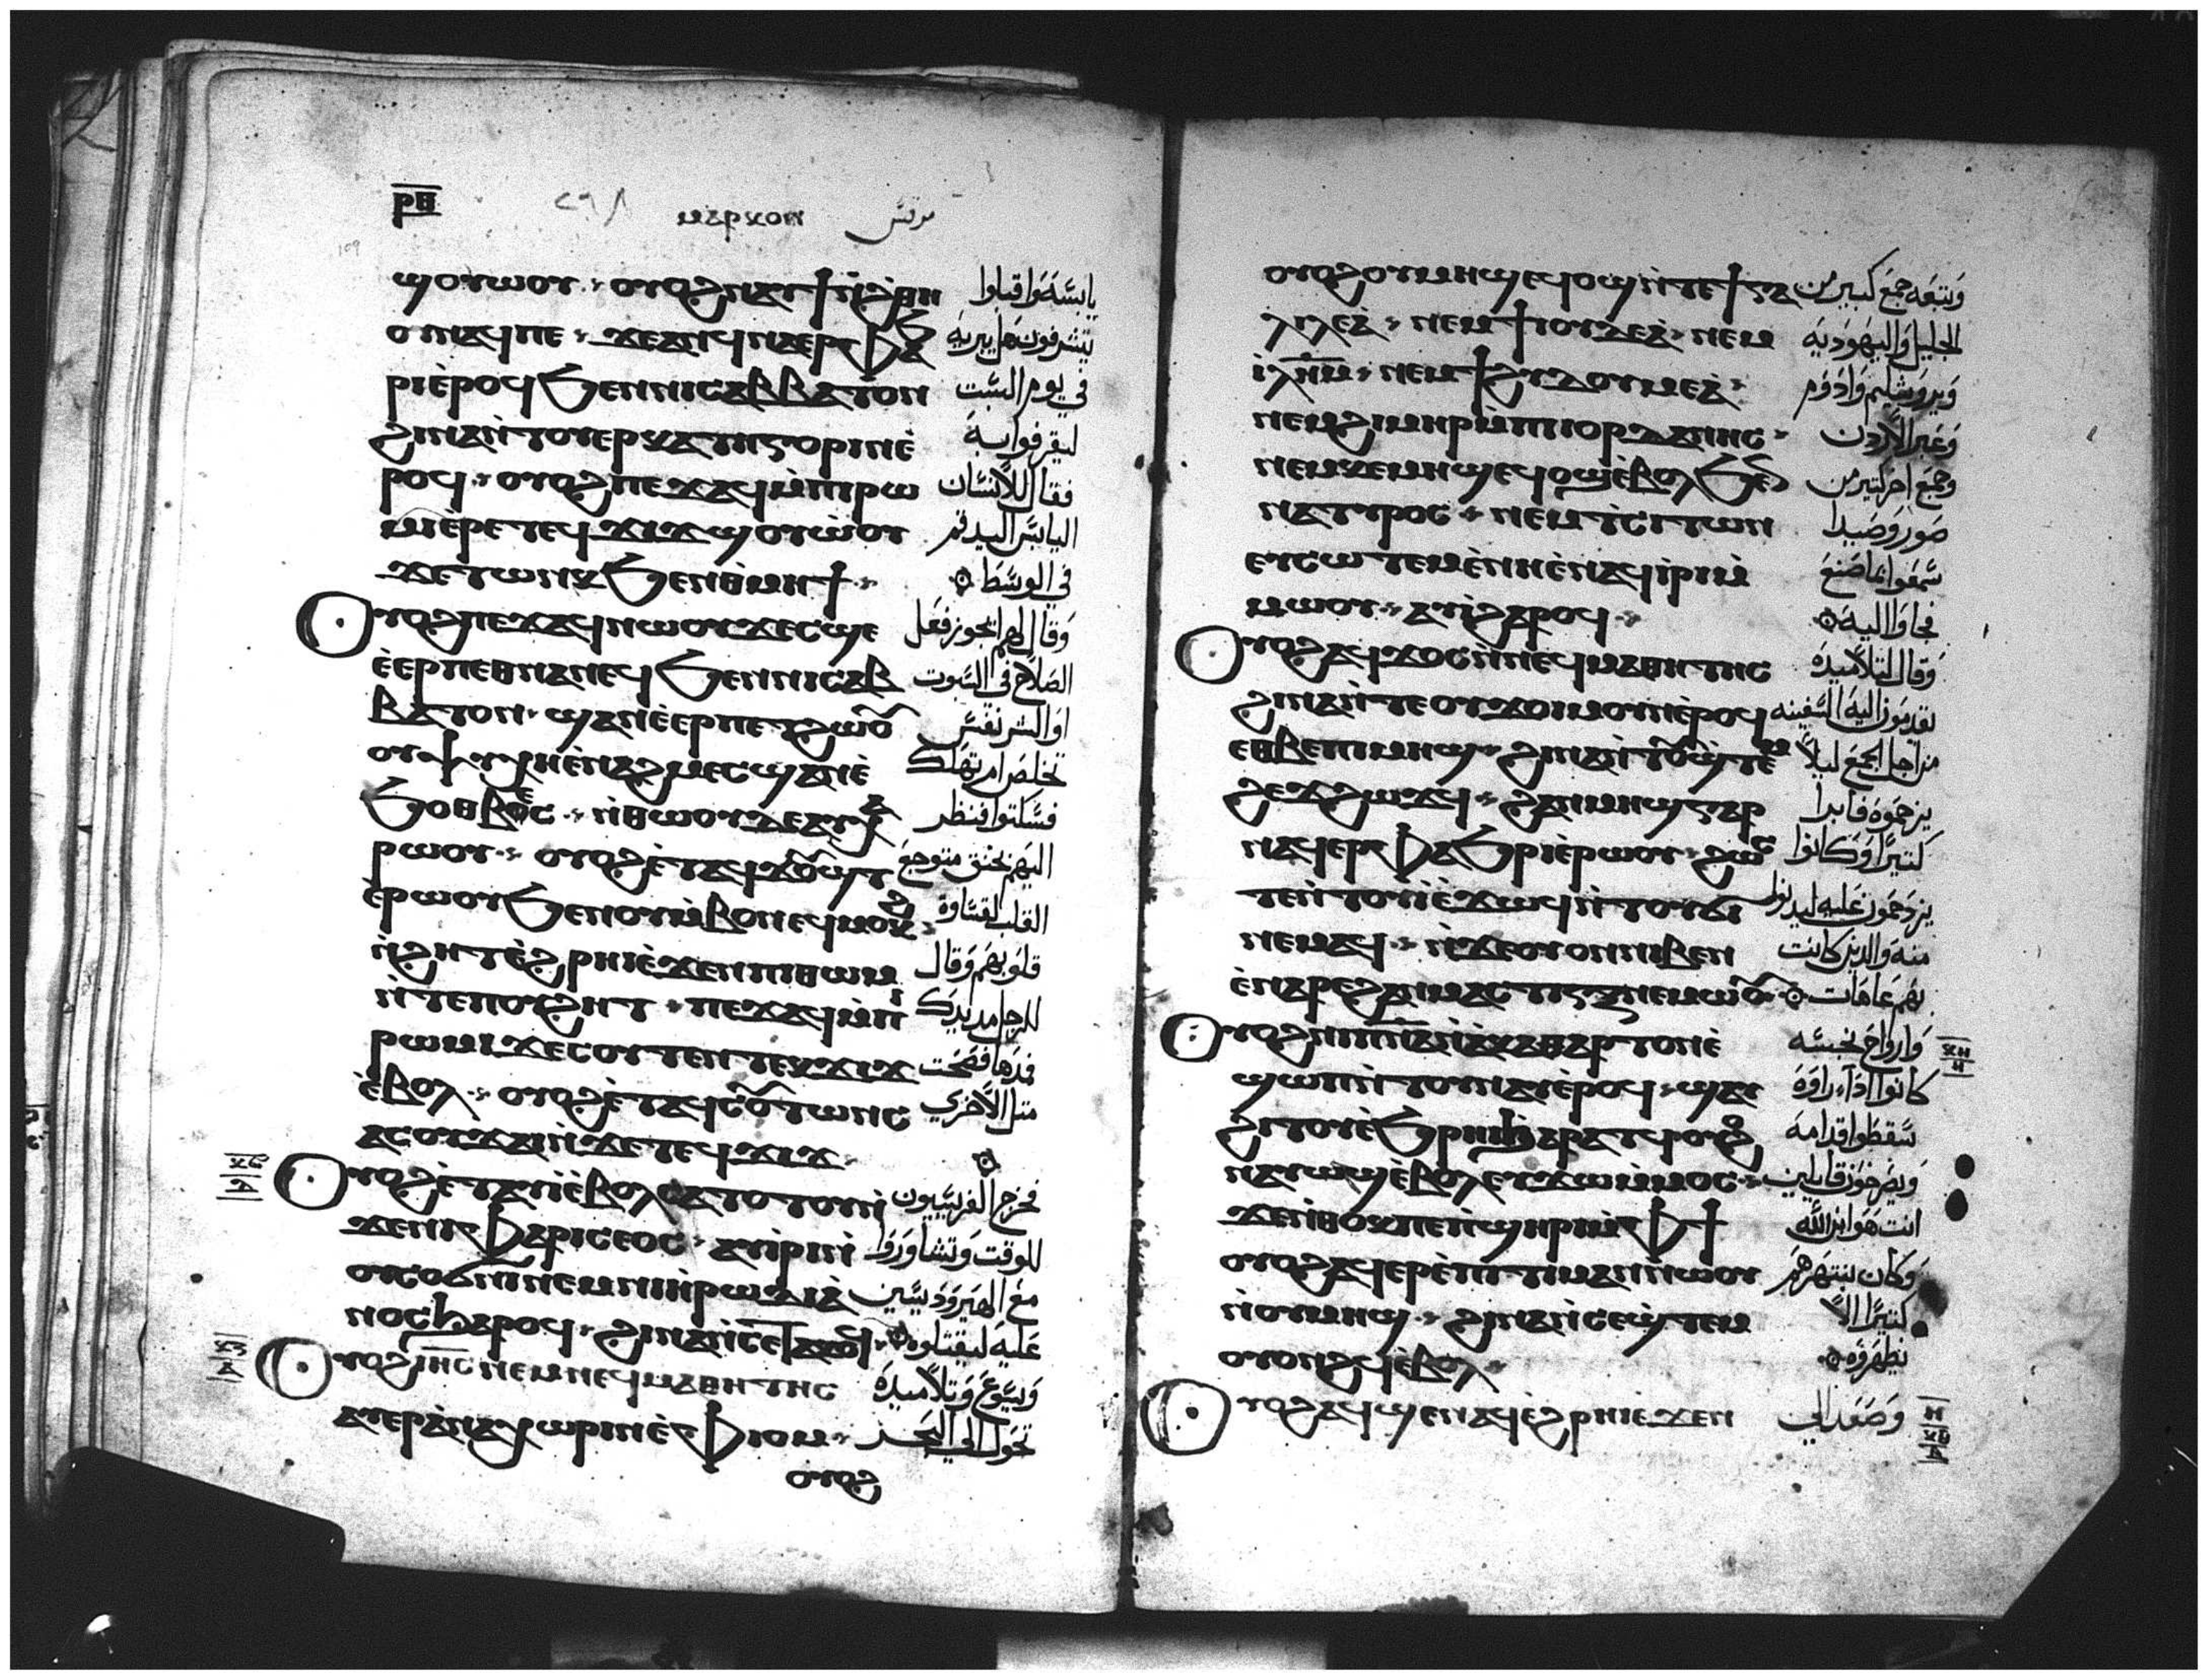 ⲣⲑ
ⲙⲁⲣⲕⲟⲛ مرقس
ϣⲟⲩⲱⲟⲩ ⲟⲩⲟϩ ⲛⲁⲩϯⲛ̀ϩ̀ⲑⲏ يابسة واقبلوا
ⲟⲡⲓⲁϥⲡⲉ ϫⲉⲁⲛϥⲛⲁⲉⲣ
ⲣⲓⲉ̀ⲣⲟϥ ϧⲉⲛⲛⲓⲥⲁⲃⲃⲁⲧⲟⲛ في يوم السبت
ϩⲓⲛⲁⲛ̀ⲧⲟⲩⲉⲣⲕⲁⲧⲏⲅⲟⲣⲓⲛⲉ̀ ليقرفوا به
ⲣⲟϥ ⲟⲩⲟϩ ⲡⲉϫⲁϥⲙ̀ⲡⲓⲣⲱ فقال للانسان
ⲙⲓⲉ̀ⲣⲉⲧⲉϥϫⲓϫϣⲟⲩⲱ̀ⲟⲩ اليابس اليد قم
ϫⲉⲧⲱⲛⲕ ϧⲉⲛⲑⲙⲏϯ في الوسط
ⲟⲩⲟϩ ⲡⲉϫⲁϥⲛⲱⲟⲩ ϫⲉⲥϣⲉ وقال لهم ايجوز فعل
ⲉ̀ⲉⲣⲡⲉⲑⲛⲁⲛⲉϥ ϧⲉⲛⲛⲓⲥⲁⲃ الصلاح في السبوت
ⲃⲁⲧⲟⲛ ϣⲁⲛⲉ̀ⲉⲣⲡⲉⲧϩⲱⲟⲩ او الشر نفس
ⲟⲩⲯⲩⲭⲏⲉ̀ⲛⲁϩⲙⲉⲥϣⲁⲛⲉ̀ تخلص ام تهلك
ϧⲟⲑⲃⲉⲥ ⲛ̀ⲑⲱⲟⲩⲇⲉⲁⲩⲭⲁ فسكتوا فنظر
ⲣⲱⲟⲩ ⲟⲩⲟϩⲉ̀ⲧⲁϥϫⲟⲩϣⲧ اليهم بحنق متوجع
ⲉ̀ⲣⲱⲟⲩϧⲉⲛⲟⲩⲙ̀ⲃⲟⲛ ⲉϥⲙⲟⲕϩ القلب لقساوة
ⲛ̀ϩⲏⲧⲉ̀ϩⲣⲏⲓⲉ̀ϫⲉⲛⲡⲓⲑⲱⲙ قلوبهم وقال
ⲛ̀ⲧⲉⲡⲟⲩϩⲏⲧ ⲡⲉϫⲁϥⲙ̀ⲡⲓ للرجل مد يدك
ⲣⲱⲙⲓ ϫⲉⲥⲟⲩⲧⲉⲛⲧⲉⲕϫⲓϫ فمدها فصحت
ⲉ̀ⲃⲟⲗ ⲟⲩⲟϩⲉ̀ⲧⲁϥⲥⲟⲩⲧⲱⲛⲥ مثل الاخري
ⲁⲥⲟⲩϫⲁⲓⲛ̀ϫⲉⲧⲉϥϫⲓϫ
ⲟⲩⲟϩⲉ̀ⲧⲁⲩⲓ̀ⲉ̀ⲃⲟⲗⲥⲁⲧⲟⲧⲟⲩⲛ̀ فخرج الفريسيون
ϫⲉⲛⲓⲫⲁⲣⲓⲥⲉⲟⲥ ⲁⲩⲓ̀ⲣⲓⲛ̀ للوقت وتشاوروا
ⲟⲩⲥⲟϭⲛⲓⲛⲉⲙⲛⲓⲏ̀ⲣⲱⲇⲓⲁ̀ مع الهيروديسيين
ⲛⲟⲥϧⲁⲣⲟϥ ϩⲓⲛⲁⲛ̀ⲥⲉⲧⲁⲕⲟϥ عليه ليقتلوه
ⲟⲩⲟϩ ⲓⲏⲥ ⲛⲉⲙⲛⲉϥⲙⲁⲑⲏⲧⲏⲥ ويسوع وتلاميذه
ⲁⲩⲉⲣⲁ̀ⲛⲁⲭⲱⲣⲓⲛⲉ̀ⲫⲓⲟⲙ تحول الي البحر
ⲟⲩⲟϩ
ⲟⲩⲟϩ ⲟⲩⲙⲏϣⲉϥⲟϣⲛ̀ⲧⲉϯⲅⲁ وتبعه جمع كبير من
ⲗⲓⲗⲉⲁ̀ ⲛⲉⲙϯⲓⲟⲩⲇⲉⲁ̀ ⲛⲉⲙ الجليل واليهودية
ⲓ̀ⲗⲏⲙ ⲛⲉⲙϯϩⲩⲇⲟⲩⲙⲉⲁ̀ ويروشليم وادوم
ⲛⲉⲙϩⲓⲙⲏⲣⲙ̀ⲡⲓⲓⲟⲣⲇⲁⲛⲏⲥ وعبر الاردن
ⲛⲉⲙⲕⲉⲙⲏϣⲉϥⲟϣⲉ̀ⲃⲟⲗϧⲉⲛ وجمع اخر كثير من
ⲛⲁⲧⲩⲣⲟⲥ ⲛⲉⲙⲧ̀ⲥⲓⲧⲱⲛ صور وصيدا
ⲉⲩⲥⲱⲧⲉⲙⲉ̀ⲛⲏⲉ̀ⲛⲁϥⲓ̀ⲣⲓⲙ̀ سمعوا بما صنع
ⲙⲱⲟⲩ ⲁⲩⲓ̀ϩⲁⲣⲟϥ فجاوا اليه
ⲟⲩⲟϩ ⲁϥϫⲟⲥⲛ̀ⲛⲉϥⲙⲁⲑⲏⲧⲏⲥ وقال لتلاميذه
ϩⲓⲛⲁⲛ̀ⲧⲉⲟⲩϫⲟⲓⲙⲟⲩⲛⲉ̀ⲣⲟϥ يقدمون اليه السفينه
ⲉⲑⲃⲉⲡⲓⲙⲏϣ ϩⲓⲛⲁⲛ̀ⲧⲟⲩϣ̀ⲧⲉⲙ من اجل الجمع ليلا
ϩⲉϫϩⲱϫϥ ϩⲁⲛⲙⲏϣⲅⲁⲣ يزحموه فابرا
ⲛⲁϥⲉⲣⲫⲁϧⲣⲓⲉ̀ⲣⲱⲟⲩ ϩⲱⲥ كثيرا وكانوا
ⲧⲉⲛ̀ⲧⲟⲩⲓ̀ⲉ̀ϫⲱϥⲛ̀ⲧⲟⲩϭⲓ
ⲛⲉⲙⲁϥ ⲛ̀ϫⲉⲟⲩⲟⲛⲛⲓⲃⲉⲛ منه والذين كانت
ⲉ̀ⲛⲁⲣⲉϩⲁⲛⲙⲁⲥⲧⲓⲅⲝⲛⲉⲙⲱⲟⲩ بهم عاهات
ⲟⲩⲟϩ ⲛⲓⲡⲛⲁⲛ̀ⲁ̀ⲕⲁⲑⲁⲣⲧⲟⲛⲉ̀ وارواح نجسه
ϣⲱⲡⲛ̀ⲧⲟⲩⲛⲁⲩⲉ̀ⲣⲟϥ ϣⲁⲩ كانوا اذا راوه
ϩⲓⲧⲟⲩⲉ̀ϧⲣⲏⲓϧⲁⲣⲁⲧϥⲟⲩⲟϩ سقطوا قدامه
ⲛⲁⲩⲱϣⲉ̀ⲃⲟⲗⲉⲩϫⲱⲙ̀ⲙⲟⲥ ويصرخون قايلين
ϫⲉⲛ̀ⲑⲟⲕⲡⲉⲡ̀ϣⲏⲣⲓⲙ̀ⲫϯ انت هو ابن الله
ⲟⲩⲟϩ ⲁϥⲉⲣⲉ̀ⲡⲓⲧⲓⲙⲁⲛⲛ̀ⲱⲟⲩ وكان ينتهرهم
ⲛ̀ⲟⲩⲙⲏϣ ϩⲓⲛⲁⲛ̀ⲥⲉϣ̀ⲧⲉⲙ كثيرا الا
ⲟⲩⲟⲛϩϥⲉ̀ⲃⲟⲗ يظهروه
ⲟⲩⲟϩ ⲁϥϣⲉⲛⲁϥⲉ̀ϩⲣⲏⲓⲉ̀ϫⲉⲛ وصعد الي